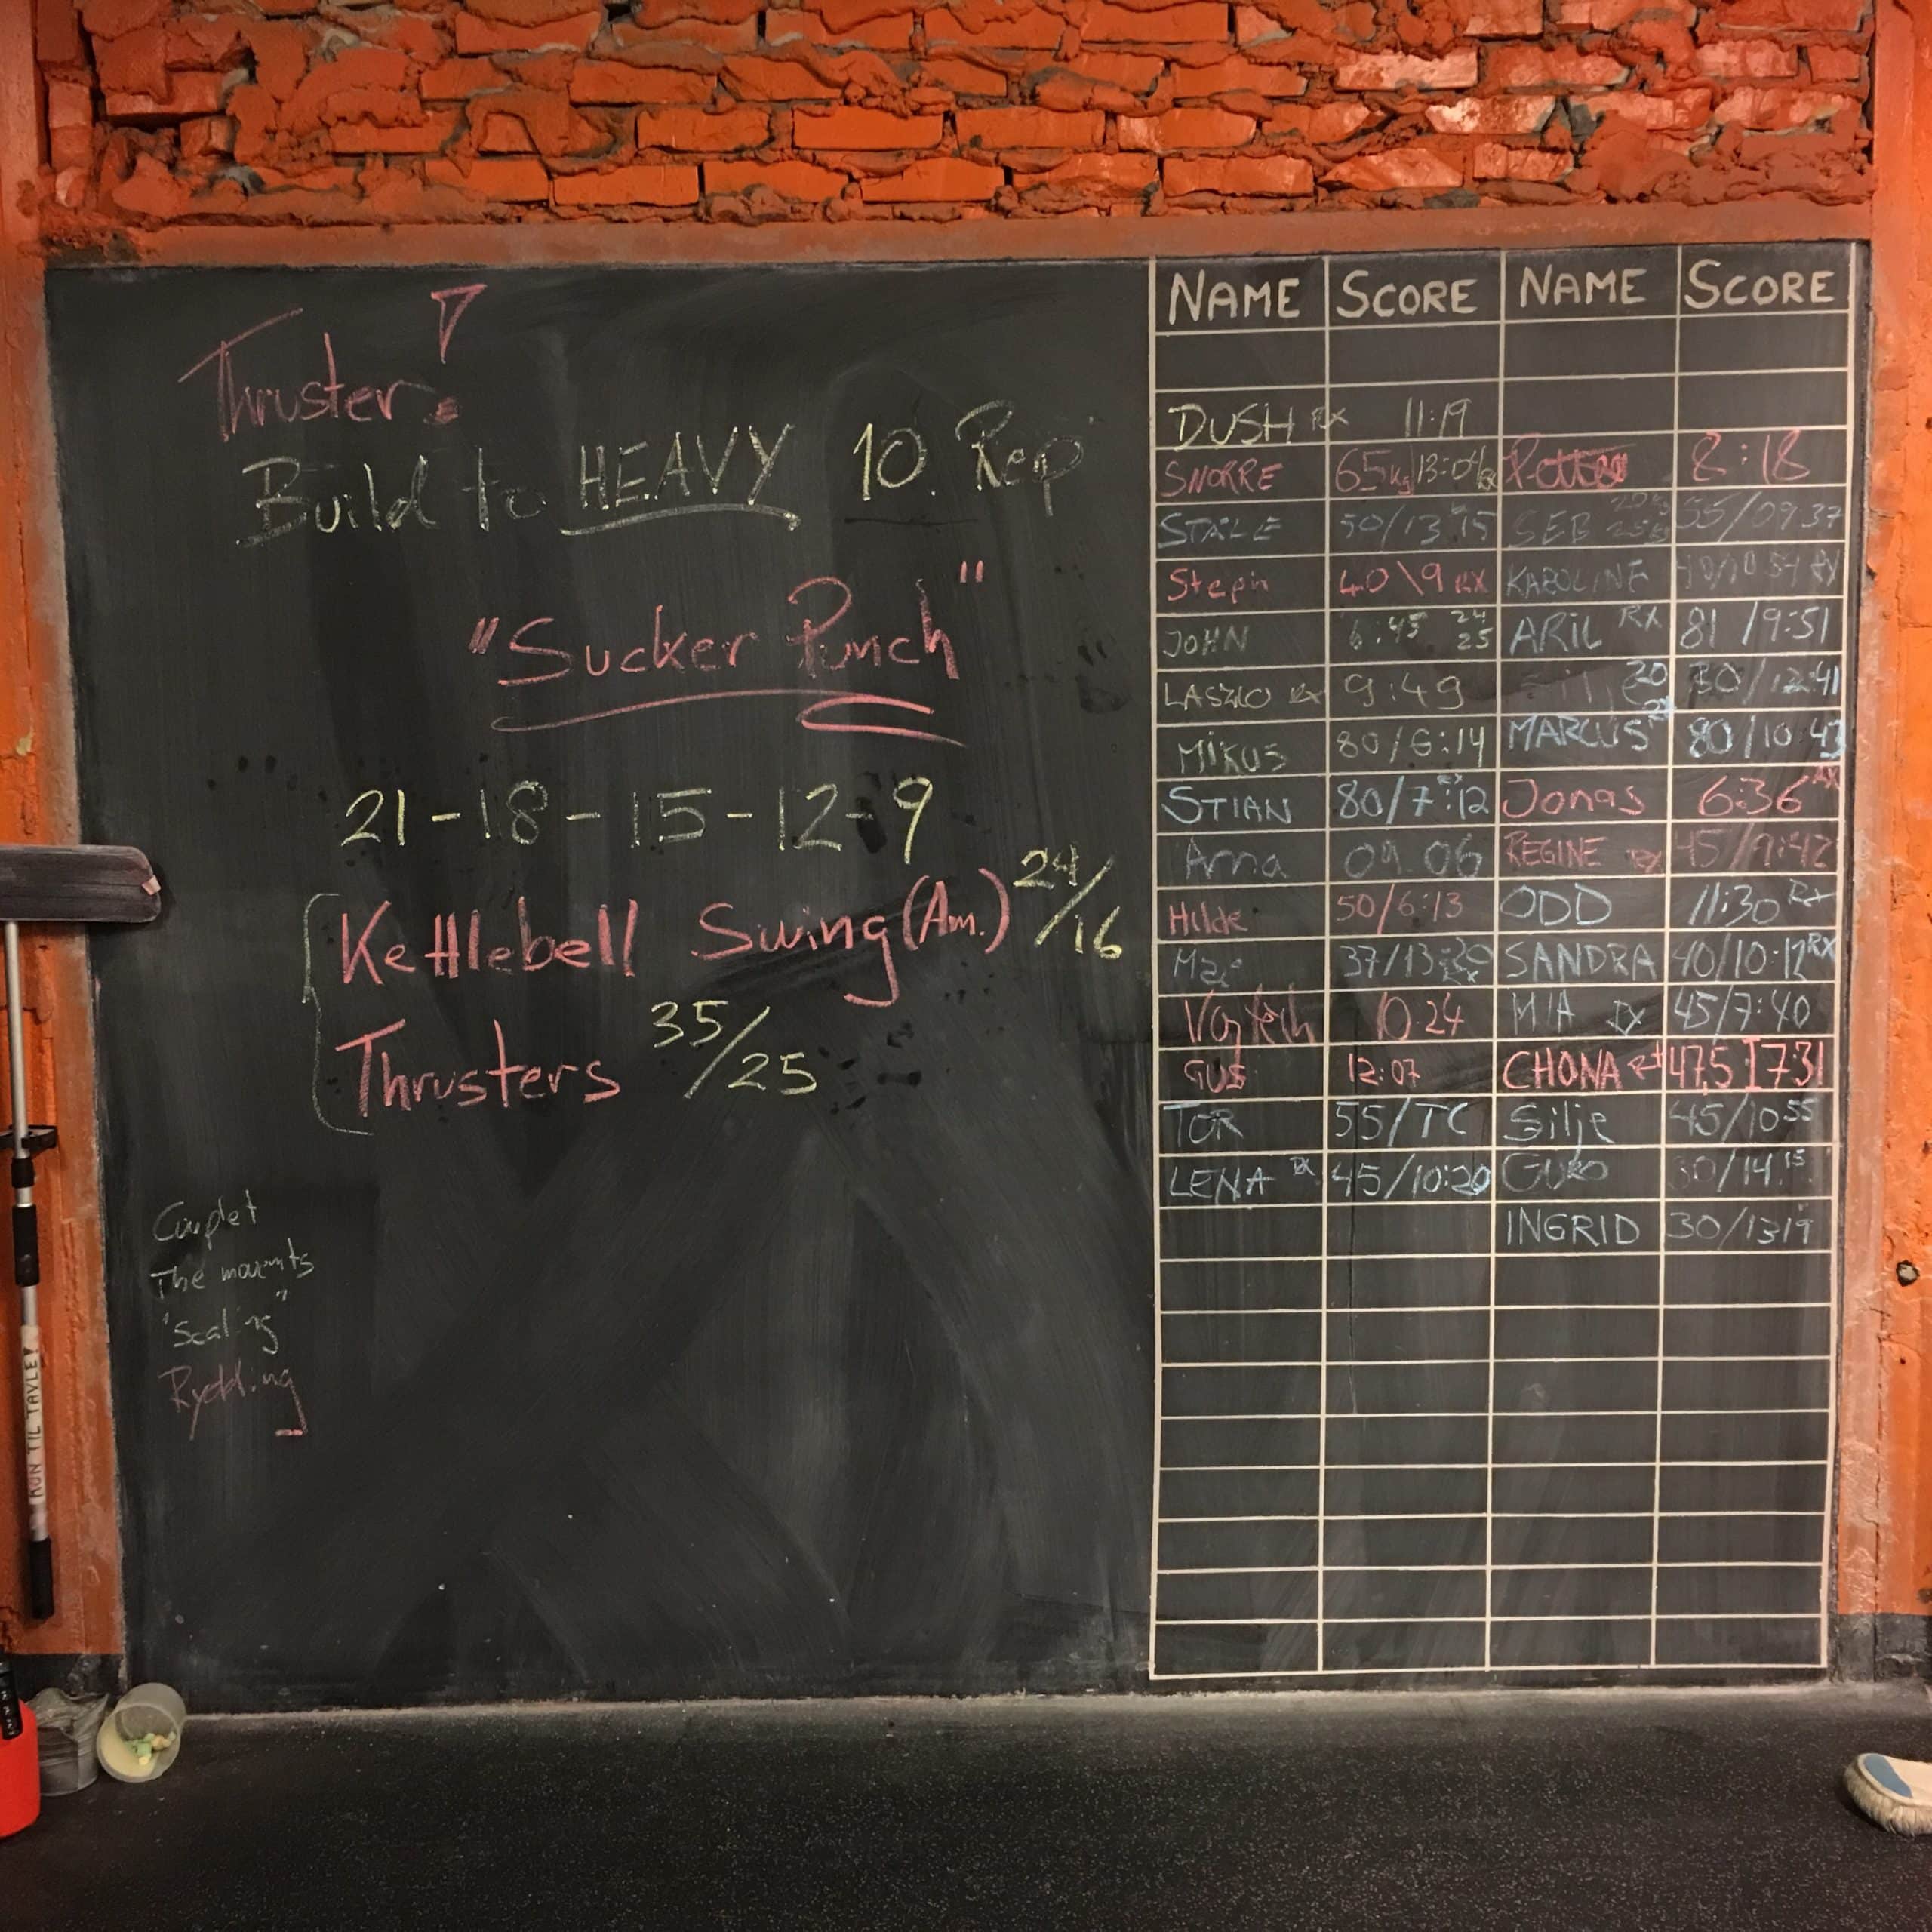 Thruster!
Build to HEAVY 10 Rep
"Sucker Punch"
21-18-15-12-9
Kettlebell Swing (Am.) 24/16
Thrusters 35/25
Couplet
The
"Scaling"
Rydding
KUN TIL TAVLE
NAME SCORE NAME SCORE
DUSH RX 11:19
SNORRE 65kg/13:04 8:18
STÅLE 50/13:15 SEB 55/09 37
Steph 40\9 RX KAROLINE
JOHN 6:45 24 25 ARIL RX 81 /9:51
LASZLO RX 9:49 20 /12:41
MIKUS 80/6:14 MARCUS 80/10:43
STIAN 80/7:12 RX Jonas 6:36 RX
Anna 09.06 REGINE RX 45/
Hilde 50/6:13 ODD 11:30 RX
37/13: SANDRA 40/10:12 RX
10:24 MIA RX 45/7:40
GUS 12:07 CHONA 47,5 7:31
TOR 55/TC Silje 45/10 55
LENA RX 45/10:20 /14 15
INGRID 30/1319